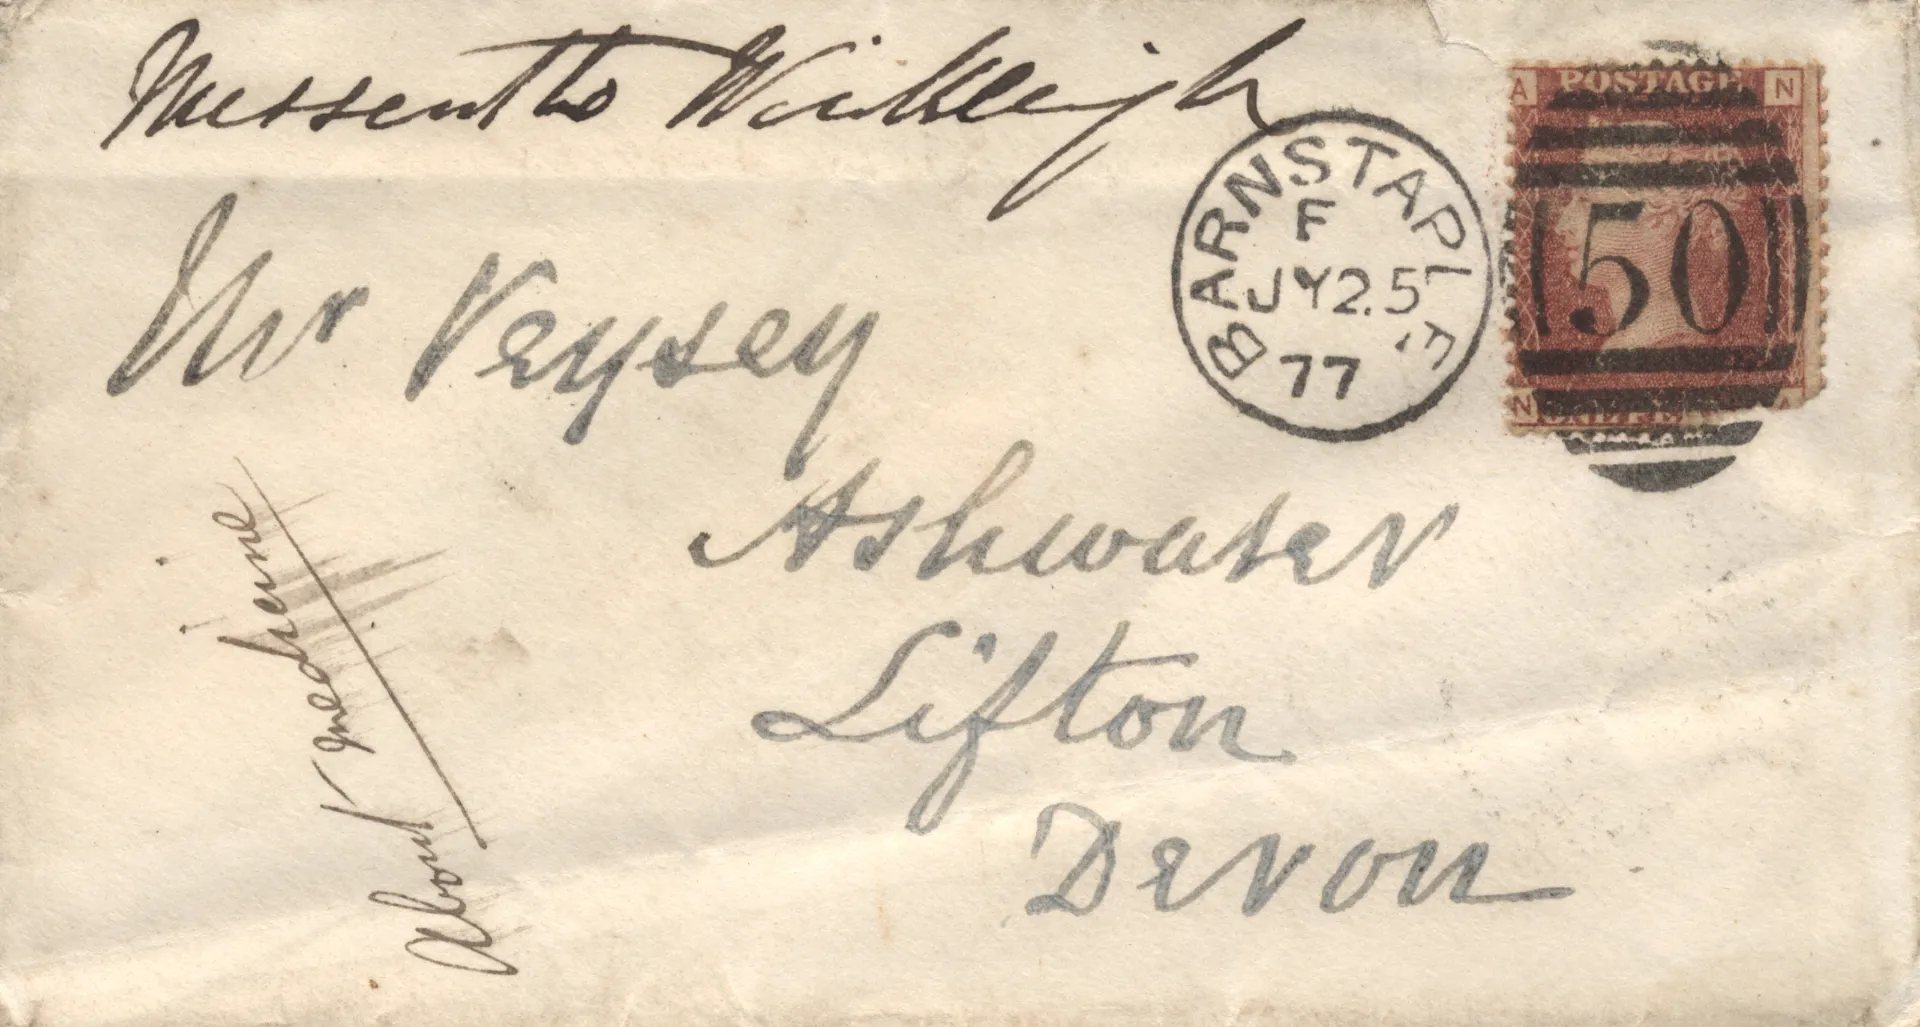 Missent to Winkleigh
A POSTAGE N
BARNSTAPLE
F
JY 25
77
50
N A
Mr Veysey
Ashwater
Lifton
Devon
About medicine